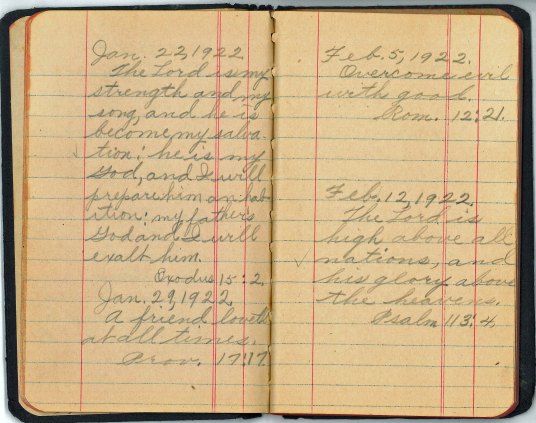 Jan. 22, 1922.
The Lord is my
strength and my
song, and he is
become my salva
tion: he is my
God, and I will
prepare him an hab
ition; my fathers
God and I will
exalt him.
Exodus 15:2.
Jan. 29, 1922.
A friend loveth
at all times.
Prov. 17:17
Feb. 5, 1922.
Overcome evil
with good.
Rom. 12:21.
Feb. 12, 1922.
The Lord is
high above all
nations, and
his glory above
the heavens.
Psalm 113:4.